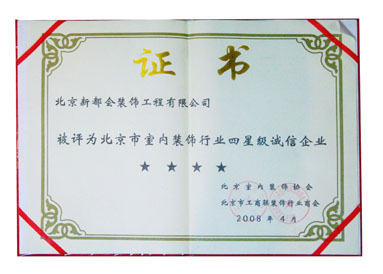 证书
北京新都会装饰工程有限公司
被评为北京市室内装饰行业四星级诚信企业
★★★★
北京室内装饰协会
北京市工商联装饰行业商会
2008年4月